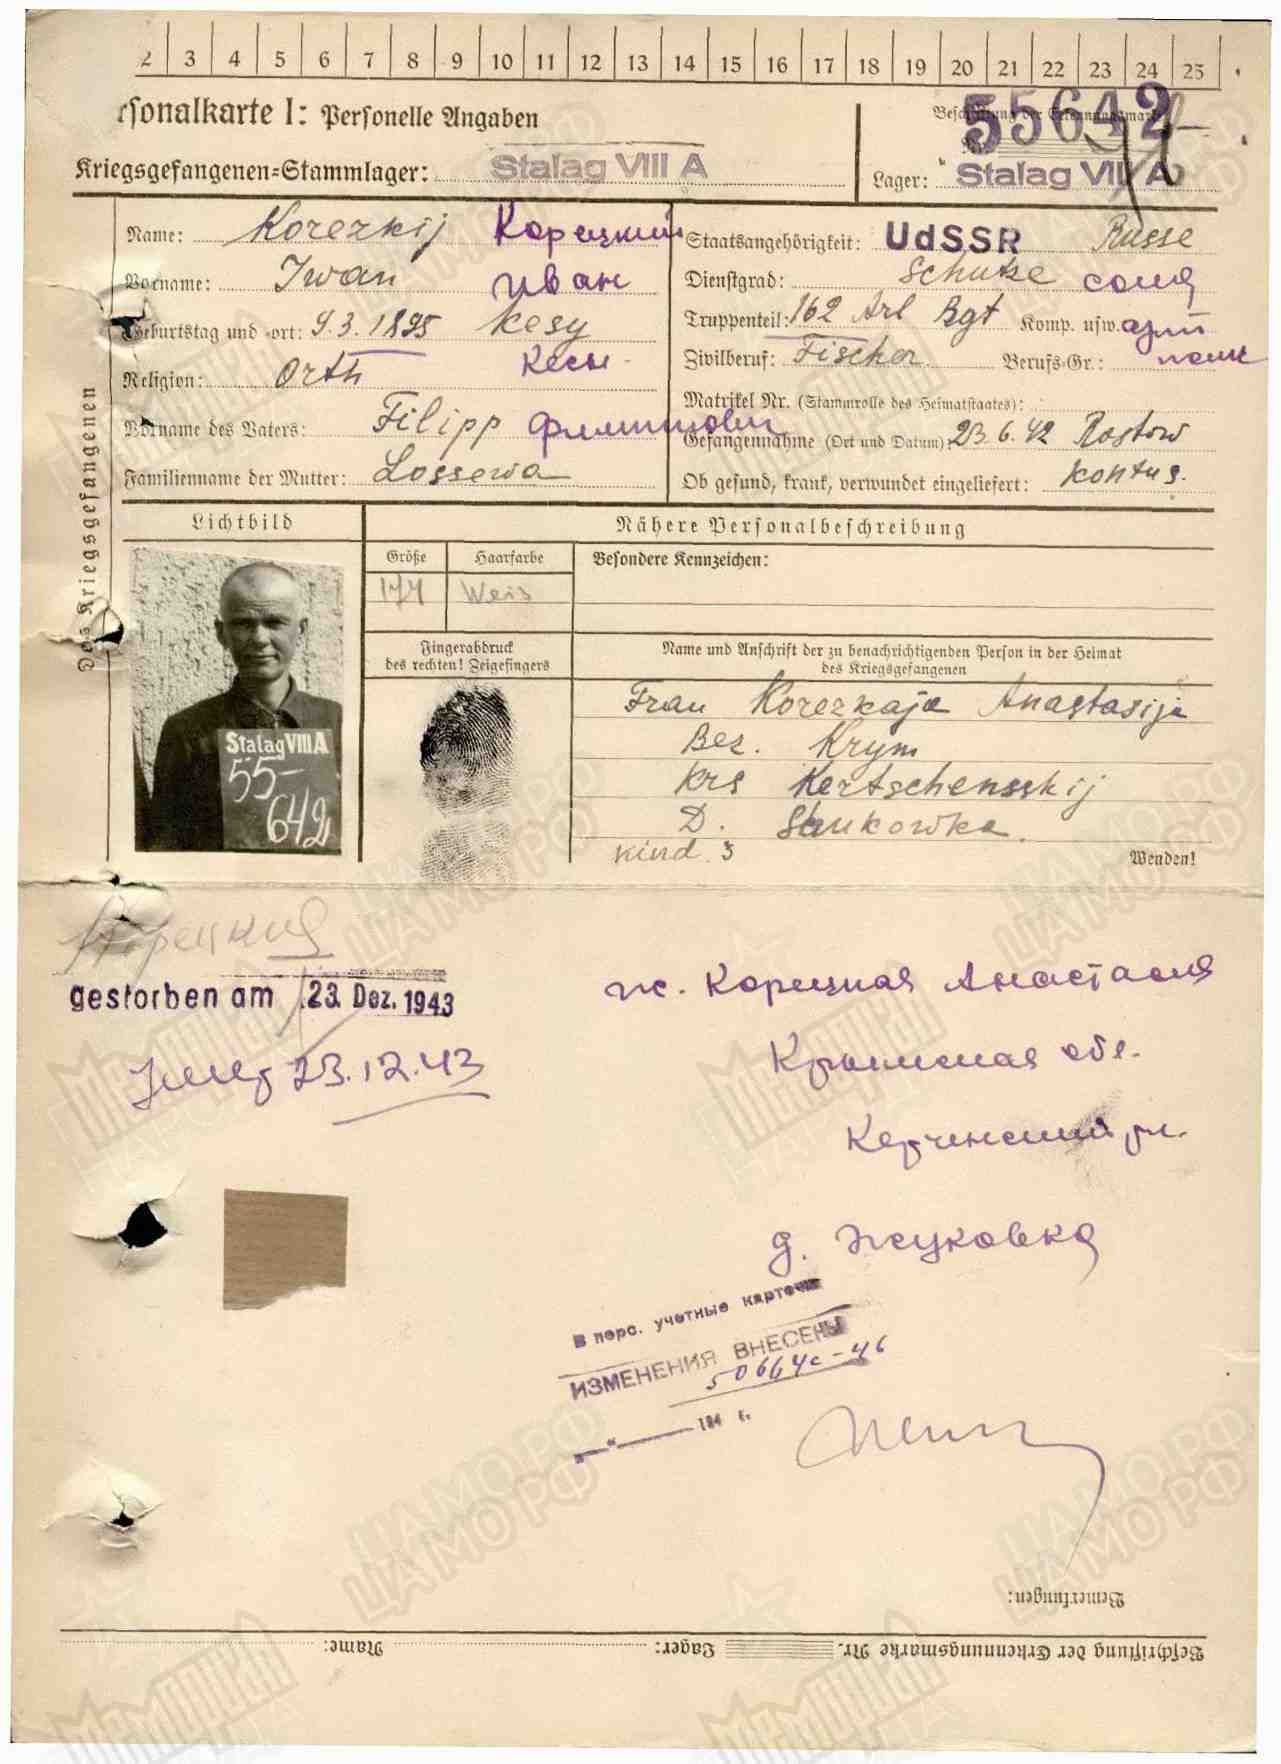 2 3 4 5 6 7 8 9 10 11 12 13 14 15 16 17 18 19 20 21 22 23 24 25
rsonalkarte I: Personelle Angaben
55642
Beschriftung der Erkennungsmarke
Kriegsgefangenen-Stammlager: Stalag VIII A
Lager: Stalag VIII A
Des Kriegsgefangenen
Name: Korezkij Корецкий
Vorname: Iwan Иван
Geburtstag und -ort: 9.3.1895 Kesy
Religion: Orth Кесы
Vorname des Vaters: Filipp Филиппович
Familienname der Mutter: Lossewa
Staatsangehörigkeit: UdSSR Russe
Dienstgrad: Schutze солд
Truppenteil: 162 Arl Rgt Komp. usw. арт
Zivilberuf: Fischer Berufs-Gr.: полк
Matrikel Nr. (Stammrolle des Heimatstaates):
Gefangennahme (Ort und Datum): 23.6.42 Rostow
Ob gesund, krank, verwundet eingeliefert: kontus.
Lichtbild
Nähere Personalbeschreibung
Größe Haarfarbe Besondere Kennzeichen:
177 Weis
Fingerabdruck
des rechten! Zeigefingers
Name und Anschrift der zu benachrichtigenden Person in der Heimat
des Kriegsgefangenen
Stalag VIII A
55-
642
Frau Korezkaja Anastasija
Bez. Krym
Krs Kertschensskij
D. Shukowka
Kind 3
Wenden!
Корецкий
gestorben am 23. Dez. 1943
Умер 23.12.43
ж. Корецкая Анастасия
Крымская обл.
Керченский р-н.
д. Жуковка
В перс. учетные карточки
ИЗМЕНЕНИЯ ВНЕСЕНЫ
50664с-46
194 г.
Bemerkungen:
Beschriftung der Erkennungsmarke Nr. Lager: Name:
Мемориал
ЦАМО РФ